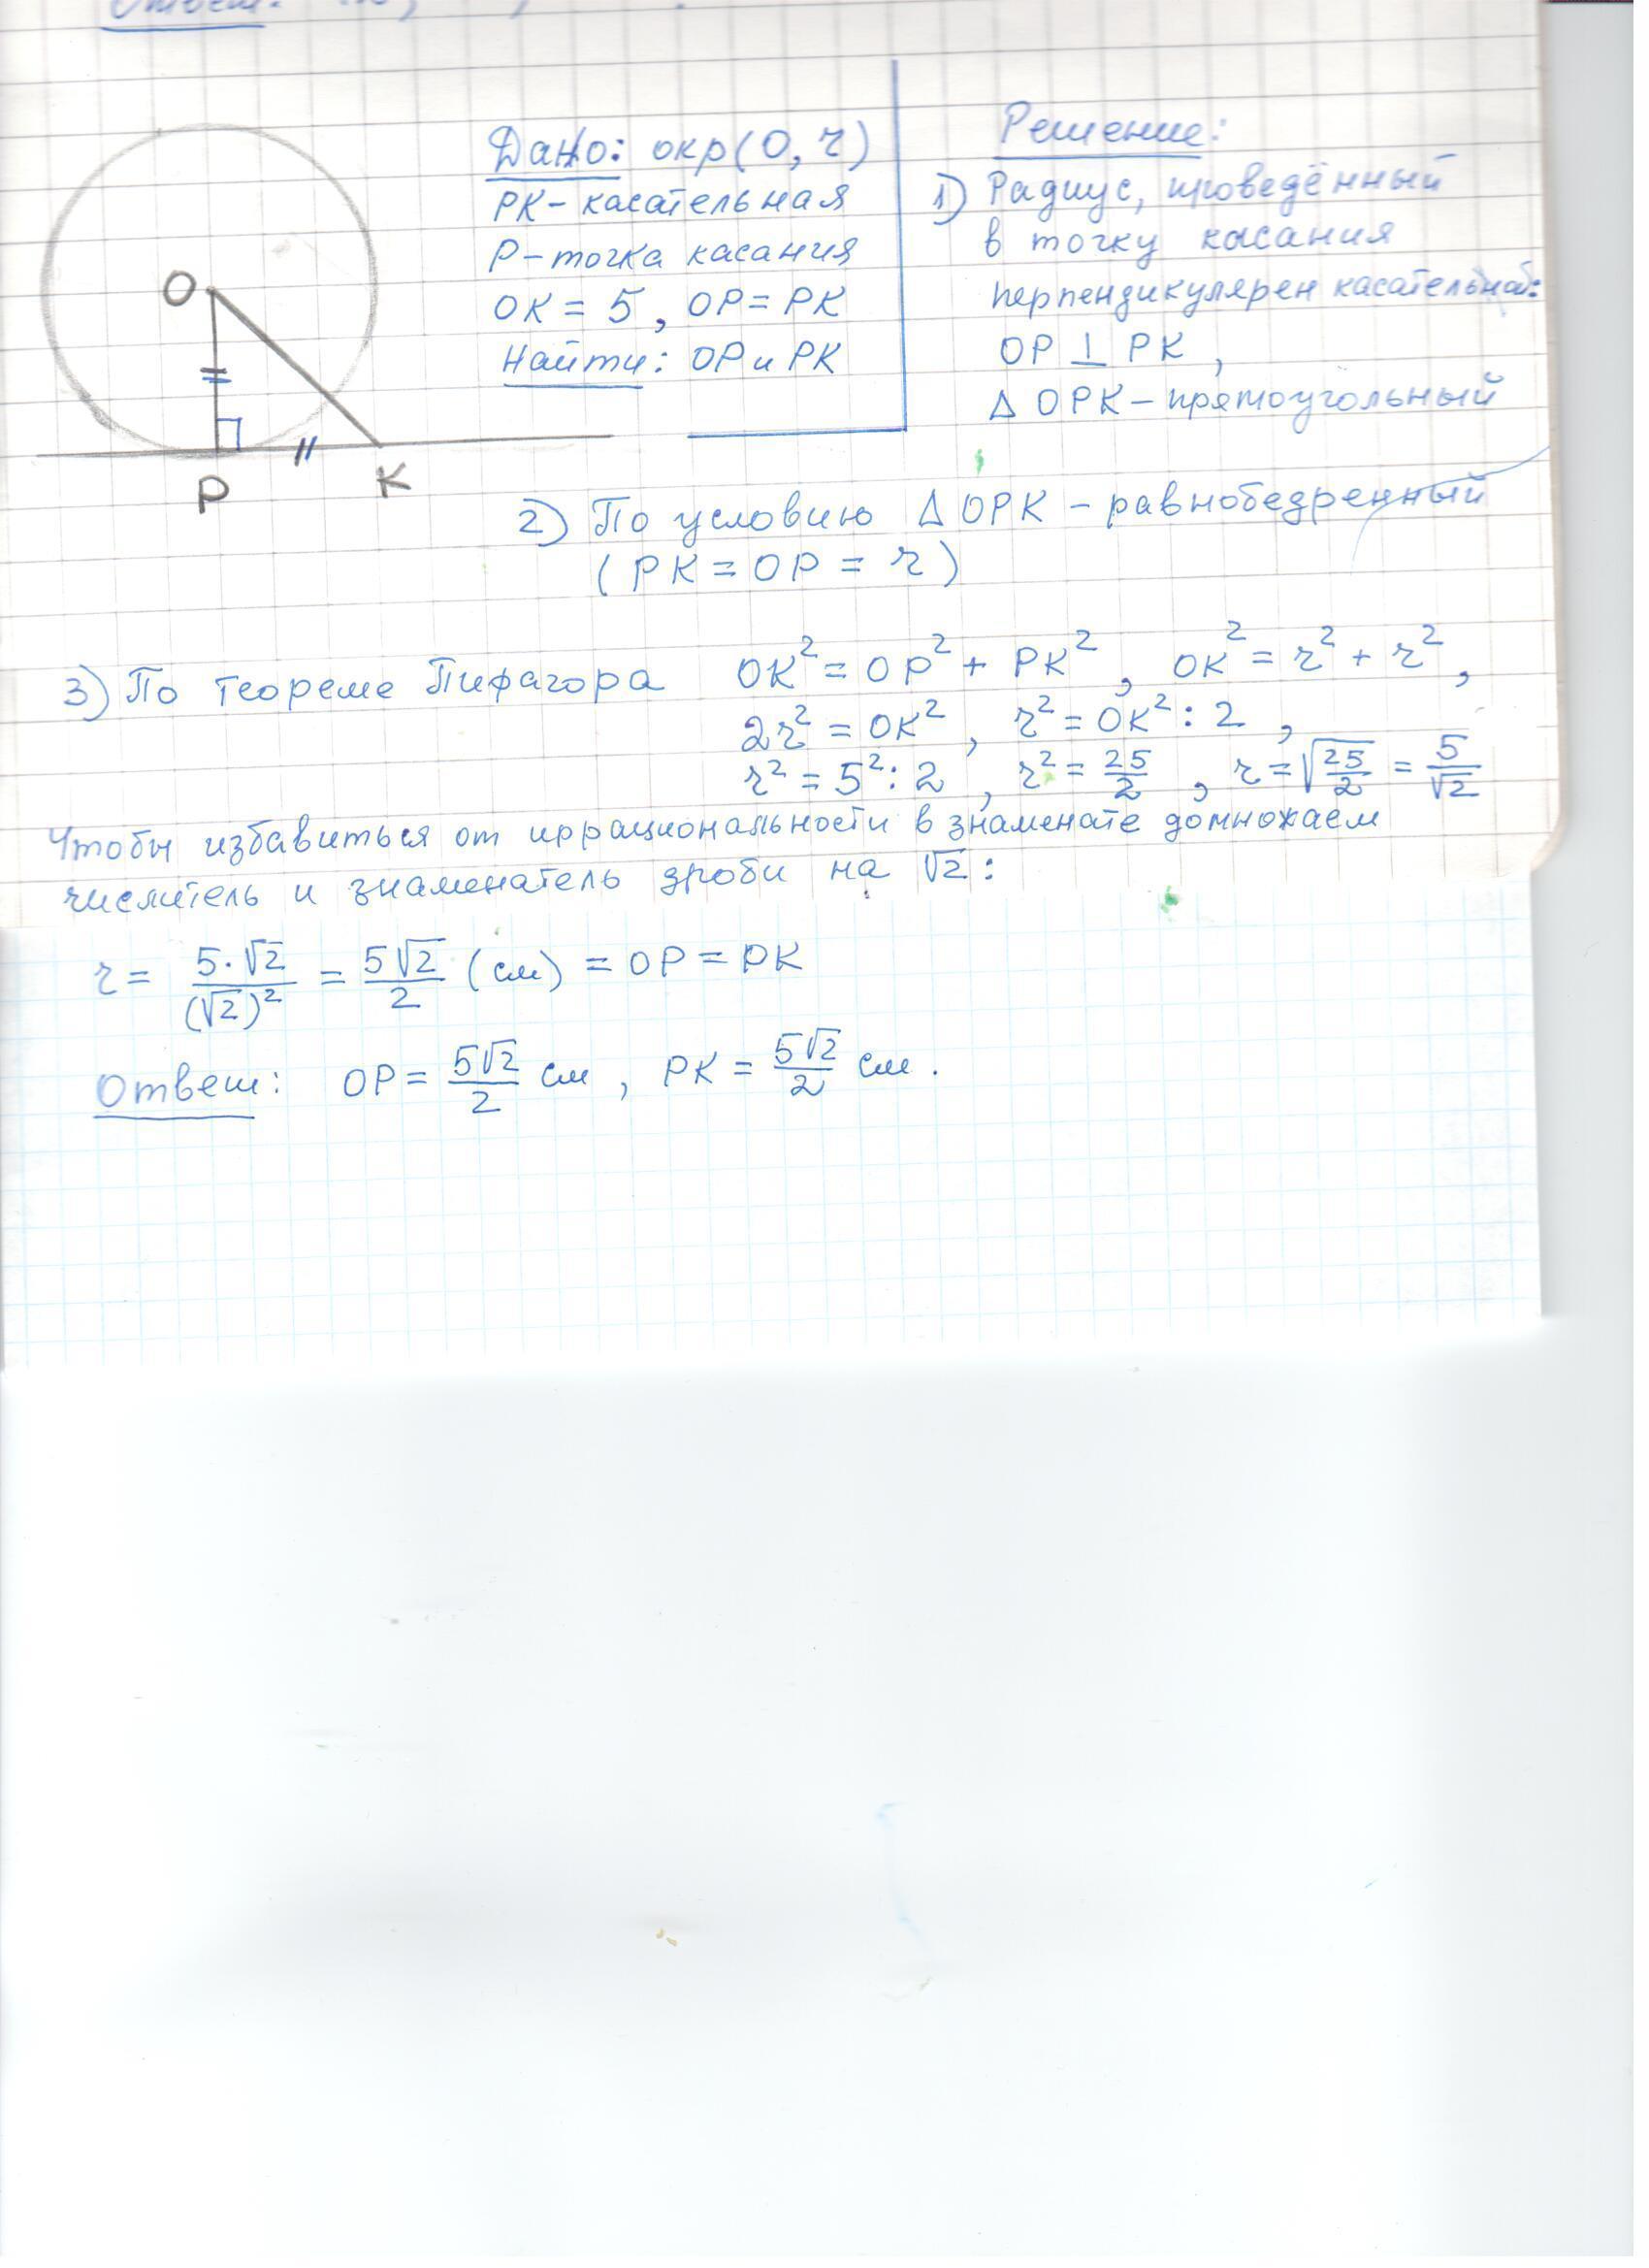 Ответ:
Дано: окр(O, r)
PK - касательная
P - точка касания
OK = 5, OP = PK
Найти: OP и PK
O
P
K
Решение:
1) Радиус, проведённый
в точку касания
перпендикулярен касательной:
OP ⊥ PK,
Δ OPK - прямоугольный
2) По условию Δ OPK - равнобедренный
(PK = OP = r)
3) По теореме Пифагора OK² = OP² + PK², OK² = r² + r²,
2r² = OK², r² = OK² : 2,
r² = 5² : 2, r² = 25/2, r = √(25/2) = 5/√2
Чтобы избавиться от иррациональности в знаменате домножаем
числитель и знаменатель дроби на √2:
r = 5·√2/(√2)² = 5√2/2 (см) = OP = PK
Ответ: OP = 5√2/2 см, PK = 5√2/2 см.